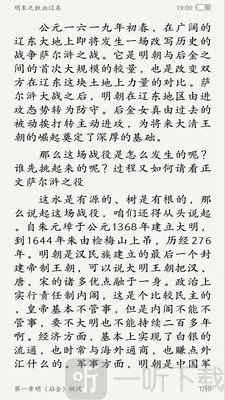 明末之铁血辽东
19:00
公元一六一九年初春，在广阔的
辽东大地上即将发生一场改写历史的
战争萨尔浒之战。它是明朝与后金之
间的首次大规模的较量，也是改变双
方在辽东这块土地上力量的对比。萨
尔浒大战之后，明朝在辽东地区由进
攻态势转为防守。后金女真由过去的
被动挨打转主动进攻，为将来大清王
朝的崛起奠定了深厚的基础。
那么这场战役是怎么发生的呢？
谁先挑起来的呢？过程又如何请看正
文萨尔浒之役
这水是有源的、树是有根的，那
么说起这场战役，咱们还得从头说起
。自朱元璋于公元1368年建立大明，
到1644年朱由检梅山上吊，历经276
年。明朝是汉民族建立的最后一个封
建帝制王朝，可以说大明王朝把汉、
唐、宋的诸多优点融于一身。政治上
实行责任制内阁，这是个比较民主的
，皇帝基本不管事，但是内阁不能不
管事，要不大明也不能持续二百多年
啊。经济方面，基本上实现了白银的
流通，也时常与海外通商，也赚点外
汇什么的。军事方面，明朝是中国军
第一章明（后金）概况
7/10
听一听下载